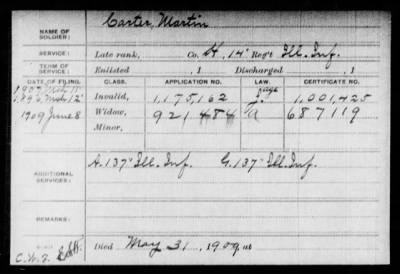 NAME OF SOLDIER: Carter, Martin
SERVICE: Late rank, Co. H, 14" Reg't Ill. Inf.
TERM OF SERVICE: Enlisted , 1 Discharged , 1
DATE OF FILING. CLASS. APPLICATION NO. LAW. CERTIFICATE NO.
1896 Mch 12 Invalid, 1,175,162 1,001,425
1909 June 8 Widow, 921 484 687119
Minor,
ADDITIONAL SERVICES: A. 137" Ill. Inf. G. 137" Ill. Inf.
REMARKS:
Died May 31, 1909, at